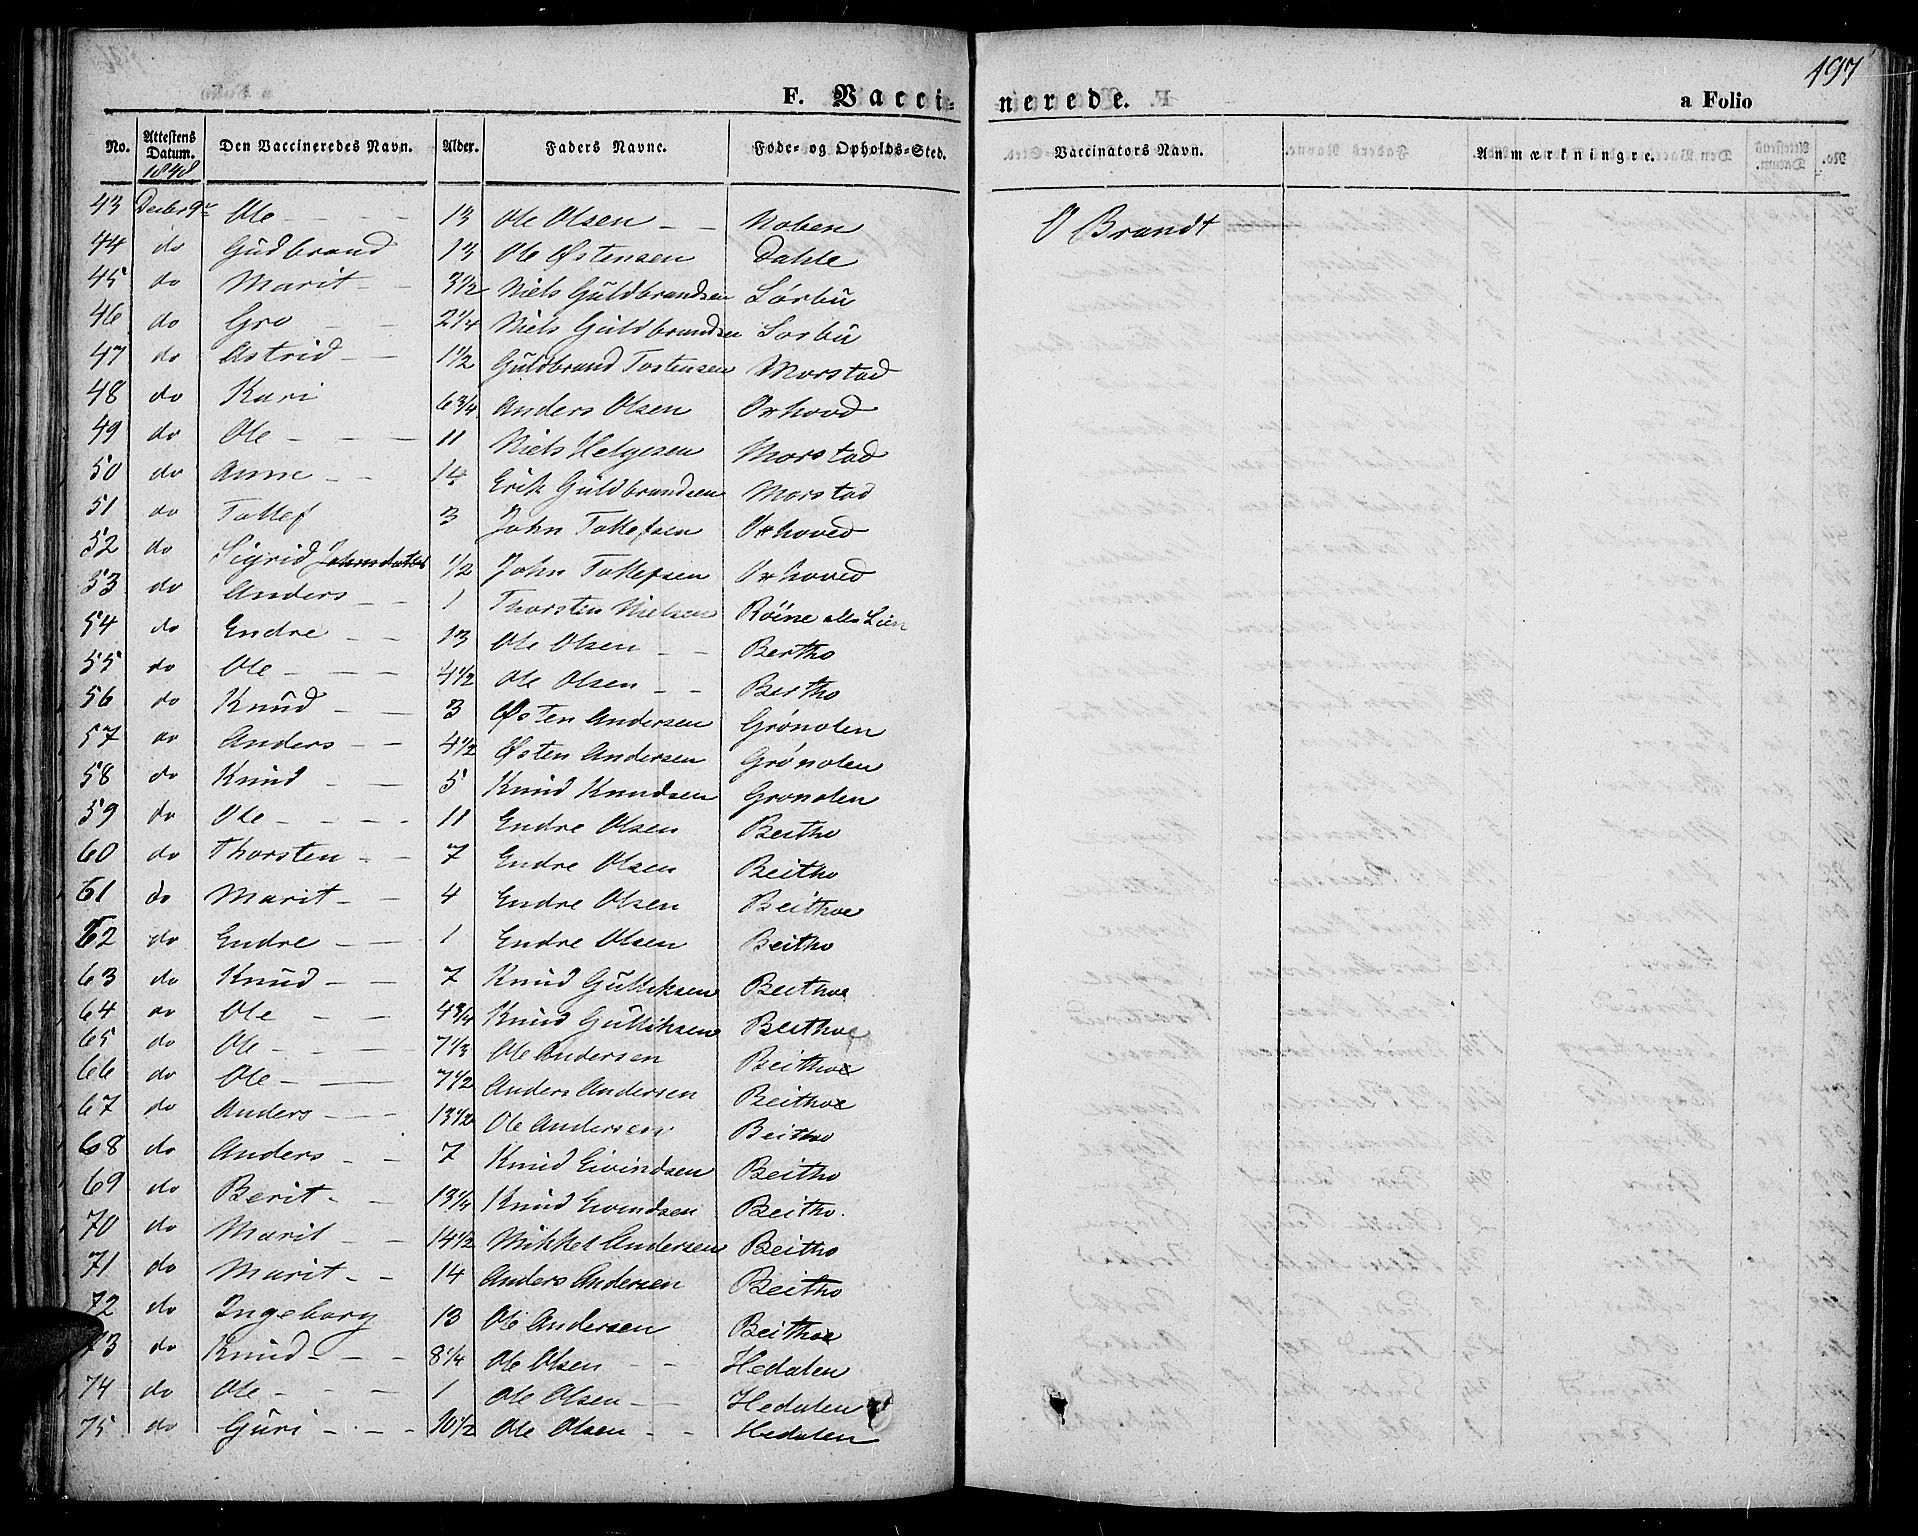 497
F. Vacci= nerede. a Folio
No. Attestens Datum. Den Vaccineredes Navn. Alder. Faders Navne. Føde- og Opholds-Sted. Vaccinators Navn. Anmærkningre.
1848
43 Decbr 9de Ole - - - - 13 Ole Olsen - - Noben O Brandt
44 do Gudbrand 13 Ole Østensen Dahle
45 do Marit - - 3 1/2 Niels Guldbrandsen Lørbu
46 do Gro - - 2 1/4 Niels Guldbrandsen Lorbu
47 do Astrid - - 1 1/2 Guldbrand Tostensen Morstad
48 do Kari 6 3/4 Anders Olsen Orhovd
49 do Ole - - - 11 Niels Helgesen Morstad
50 do Anne - - 14 Erik Guldbrandsen Morstad
51 do Tollef 3 John Tollefsen Orhoved
52 do Sigrid Johnsdatter 1/2 John Tollefsen Orhoved
53 do Anders - - 1 Thorsten Nielsen Røine alles Lien
54 do Endre - - 13 Ole Olsen - - Bertho
55 do Ole - - - 4 1/2 Ole Olsen - - Bertho
56 do Knud - - 3 Østen Andersen Grønolen
57 do Anders - - 4 1/2 Østen Andersen Grønolen
58 do Knud - - 5 Knud Knudsen Gronolen
59 do Ole - - - - 11 Endre Olsen Beitho
60 do Thorsten - - 7 Endre Olsen Beitho
61 do Marit - - 4 Endre Olsen Beithoe
62 do Endre - - 1 Endre Olsen Beitho
63 do Knud - - 7 Knud Gulliksen Beithoe
64 do Ole - - 4 3/4 Knud Gulliksen Beithoe
65 do Ole - - - 7 1/3 Ole Andersen Beithoe
66 do Ole - - 7 1/2 Anders Andersen Beithoe
67 do Anders - - 13 1/2 Ole Andersen Beitho
68 do Anders - - 7 Knud Eivindsen Beitho
69 do Berit - - 13 1/4 Knud Eivindsen Beitho.
70 do Marit - - 14 1/2 Mikkel Andersen Beitho
71 do Marit - - 14 Anders Andersen Beitho
72 do Ingeborg 13 Ole Andersen Beithoe
73 do Knud - - - 8 1/4 Ole Olsen - - Hedalen
74 do Ole - - - 1 Ole Olsen - - Hedalen
75 do Guri - - - 10 1/2 Ole Olsen - - Hedalen